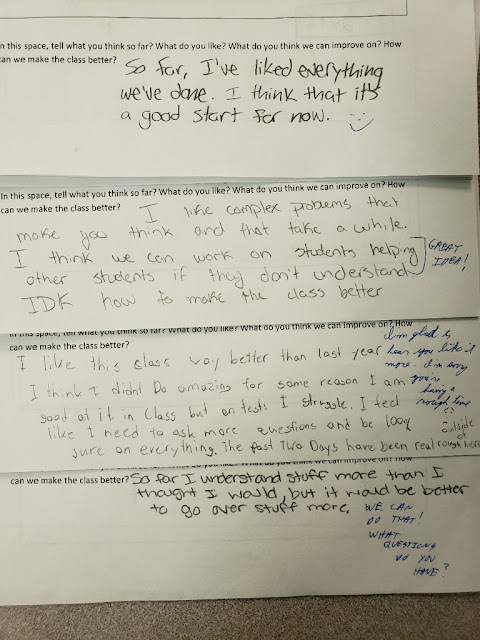 n this space, tell what you think so far? What do you like? What do you think we can improve on? How
can we make the class better?
So far, I've liked everything
we've done. I think that it's
a good start for now.
In this space, tell what you think so far? What do you like? What do you think we can improve on? How
can we make the class better?
I like complex problems that
make you think and that take a while.
I think we can work on students helping
other students if they don't understand
IDK how to make the class better
GREAT
IDEA!
In this space, tell what you think so far? What do you like? What do you think we can improve on? How
can we make the class better?
I like this class way better than last year
I think I didnt Do amazing for some reason I am
good at it in Class but on tests I struggle. I feel
like I need to ask more questions and be 100%
sure on everything. The past Two Days have been real rough here
outside
of
I'm glad to
hear you like it
more. I'm sorry
you're
having a
rough time
can we make the class better?
So far I understand stuff more than I
thought I would, but it would be better
to go over stuff more.
WE CAN
DO THAT!
WHAT
QUESTIONS
DO YOU
HAVE?